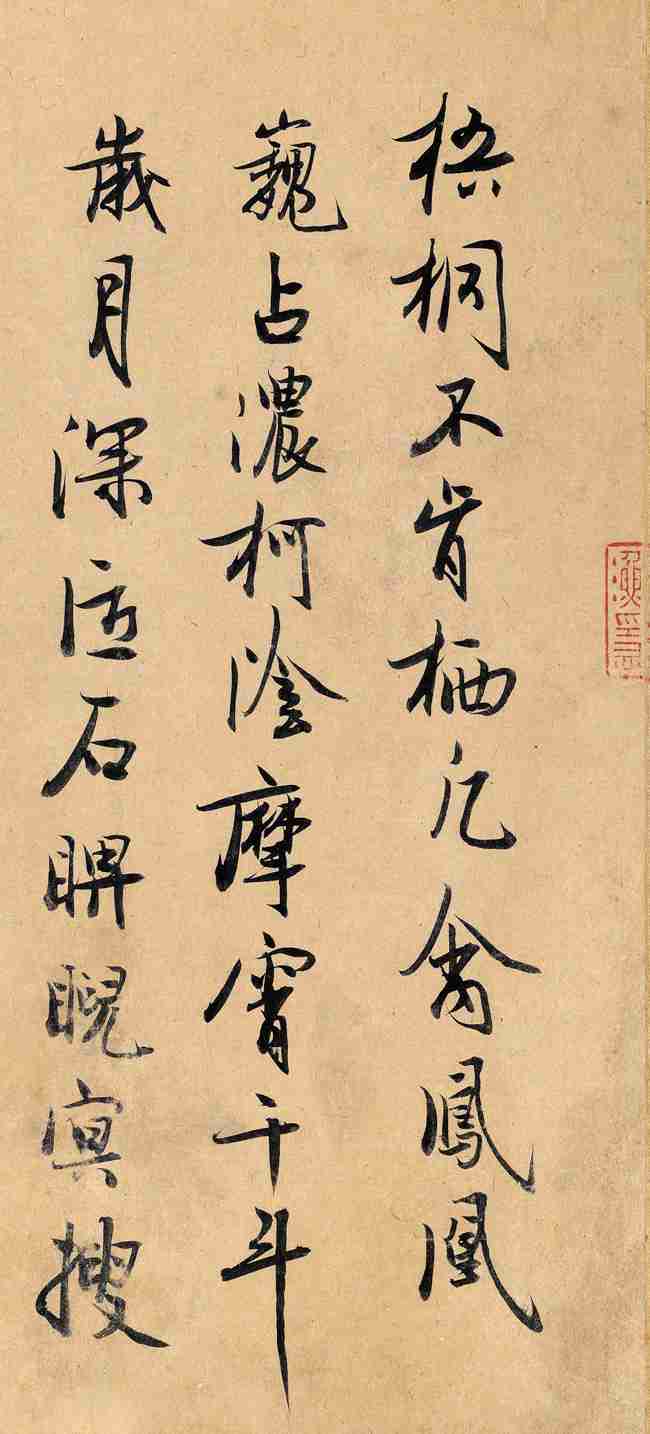 梧桐不肯栖凡禽鳳凰
巍占濃柯陰摩霄干斗
歲月深底石睥睨冥搜